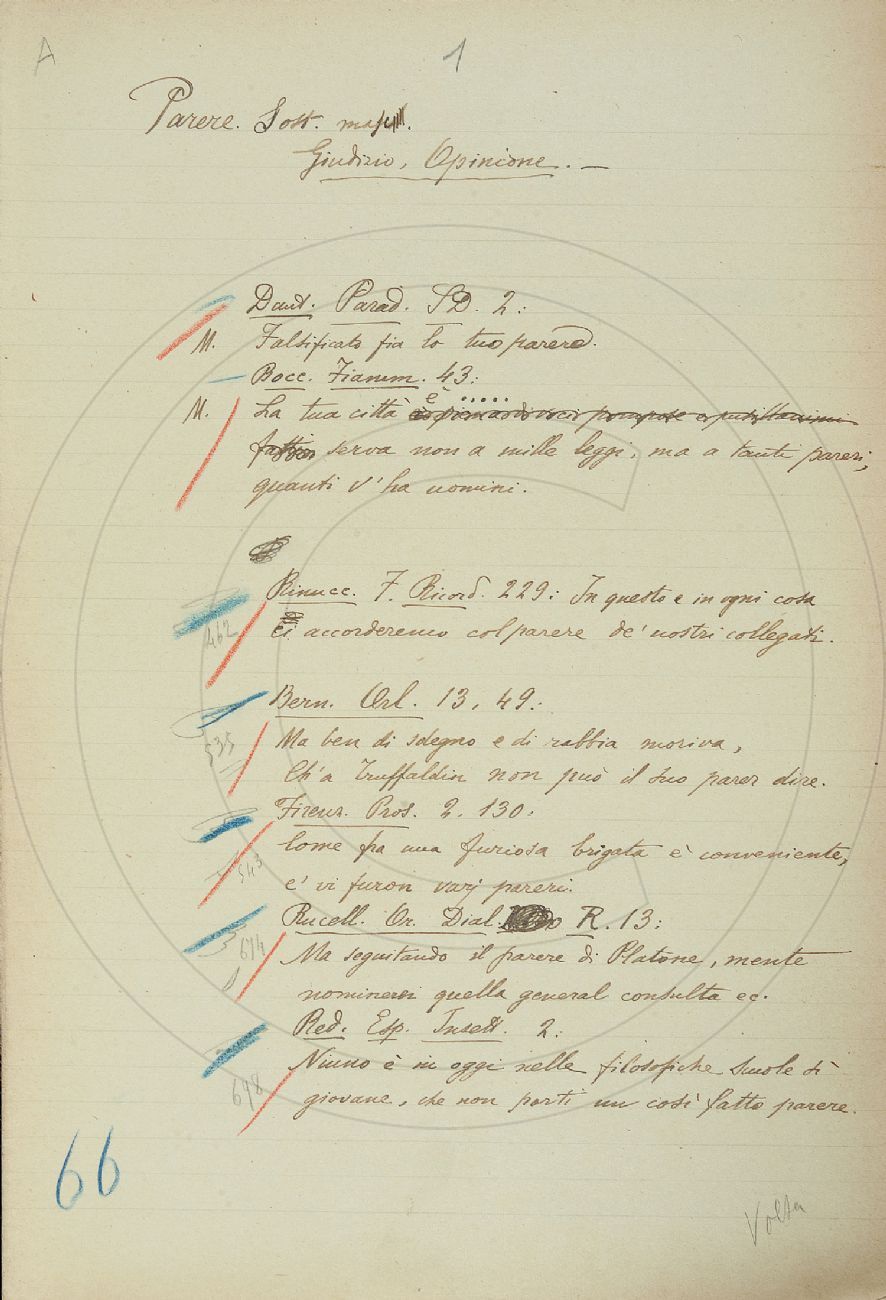 A
1
Parere. Sost. masc.
Giudizio, Opinione. —
Dant. Parad. 2:
M. Falsificato fia lo tuo parere.
Bocc. Fiamm. 43:
è .....
M. La tua città pompose e pusillanimi
fatti serva non a mille leggi, ma a tanti pareri,
quanti v'ha uomini.
Rinucc. F. Ricord. 229: In questo e in ogni cosa
462 ci accorderemo col parere de' nostri collegati.
Bern. Orl. 13, 49:
535 Ma ben di sdegno e di rabbia moriva,
Ch'a Truffaldin non può il suo parer dire.
Firenz. Pros. 2. 130.
543 Come fra una furiosa brigata è conveniente,
e' vi furon varj pareri.
Rucell. Or. Dial. R. 13:
614 Ma seguitando il parere di Platone, mente
nominerei quella general consulta ec.
Red. Esp. Insett. 2:
Niuno è in oggi nelle filosofiche scuole sì
698 giovane, che non porti un così fatto parere.
66
Volta